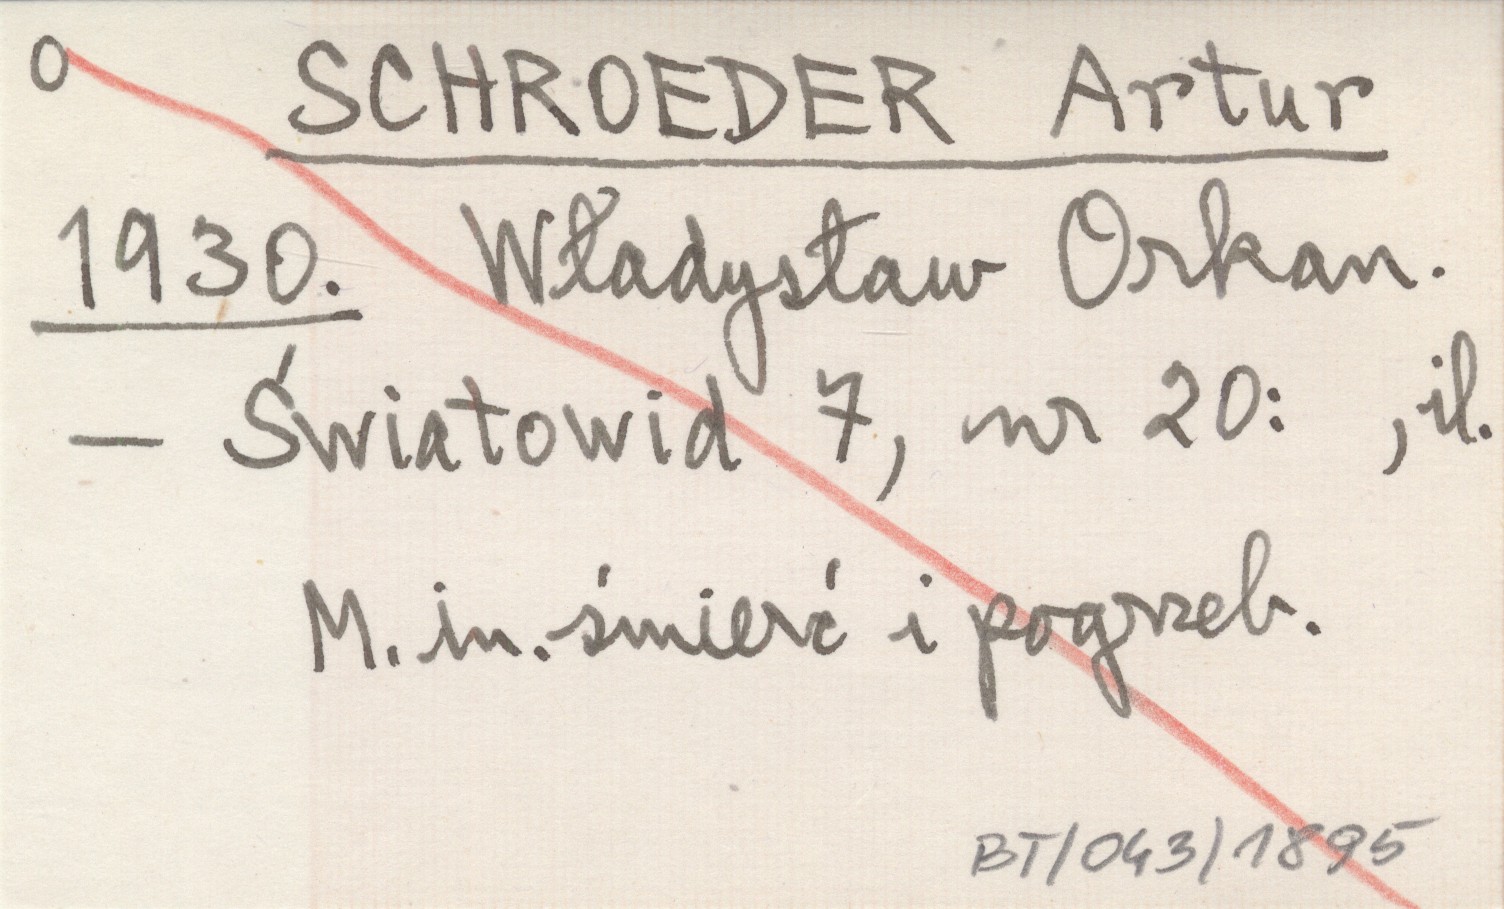 O SCHROEDER Artur
1930. Władysław Orkan.
— Światowid 7, nr 20: , il.
M. in. śmierć i pogrzeb.
BT/043/1895